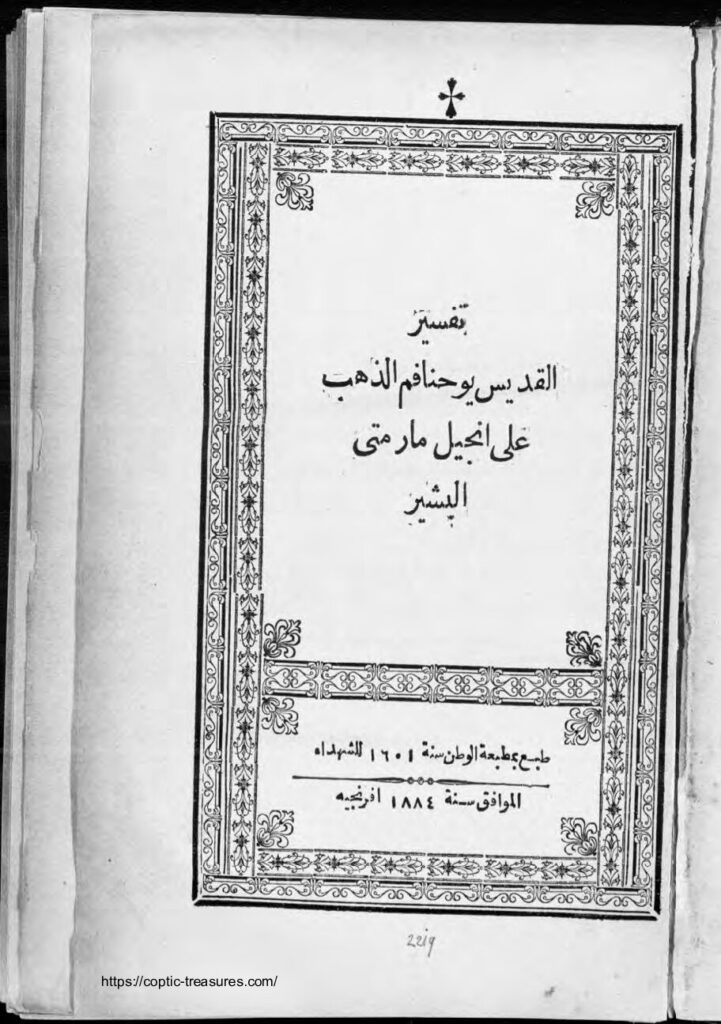 تفسير
القديس يوحنا فم الذهب
على انجيل مار متى
البشير
طبع بمطبعة الوطن سنة ١٦٠١ للشهداء
الموافق سنة ١٨٨٤ افرنجيه
2219
https://coptic-treasures.com/